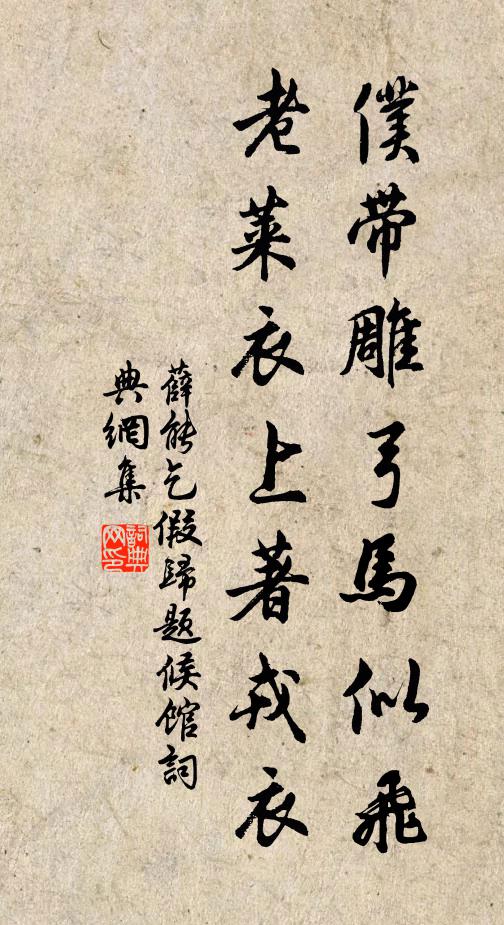 僕帶雕弓馬似飛
老萊衣上著戎衣
薛能乞假歸題候館詞
典網集
詞典网印